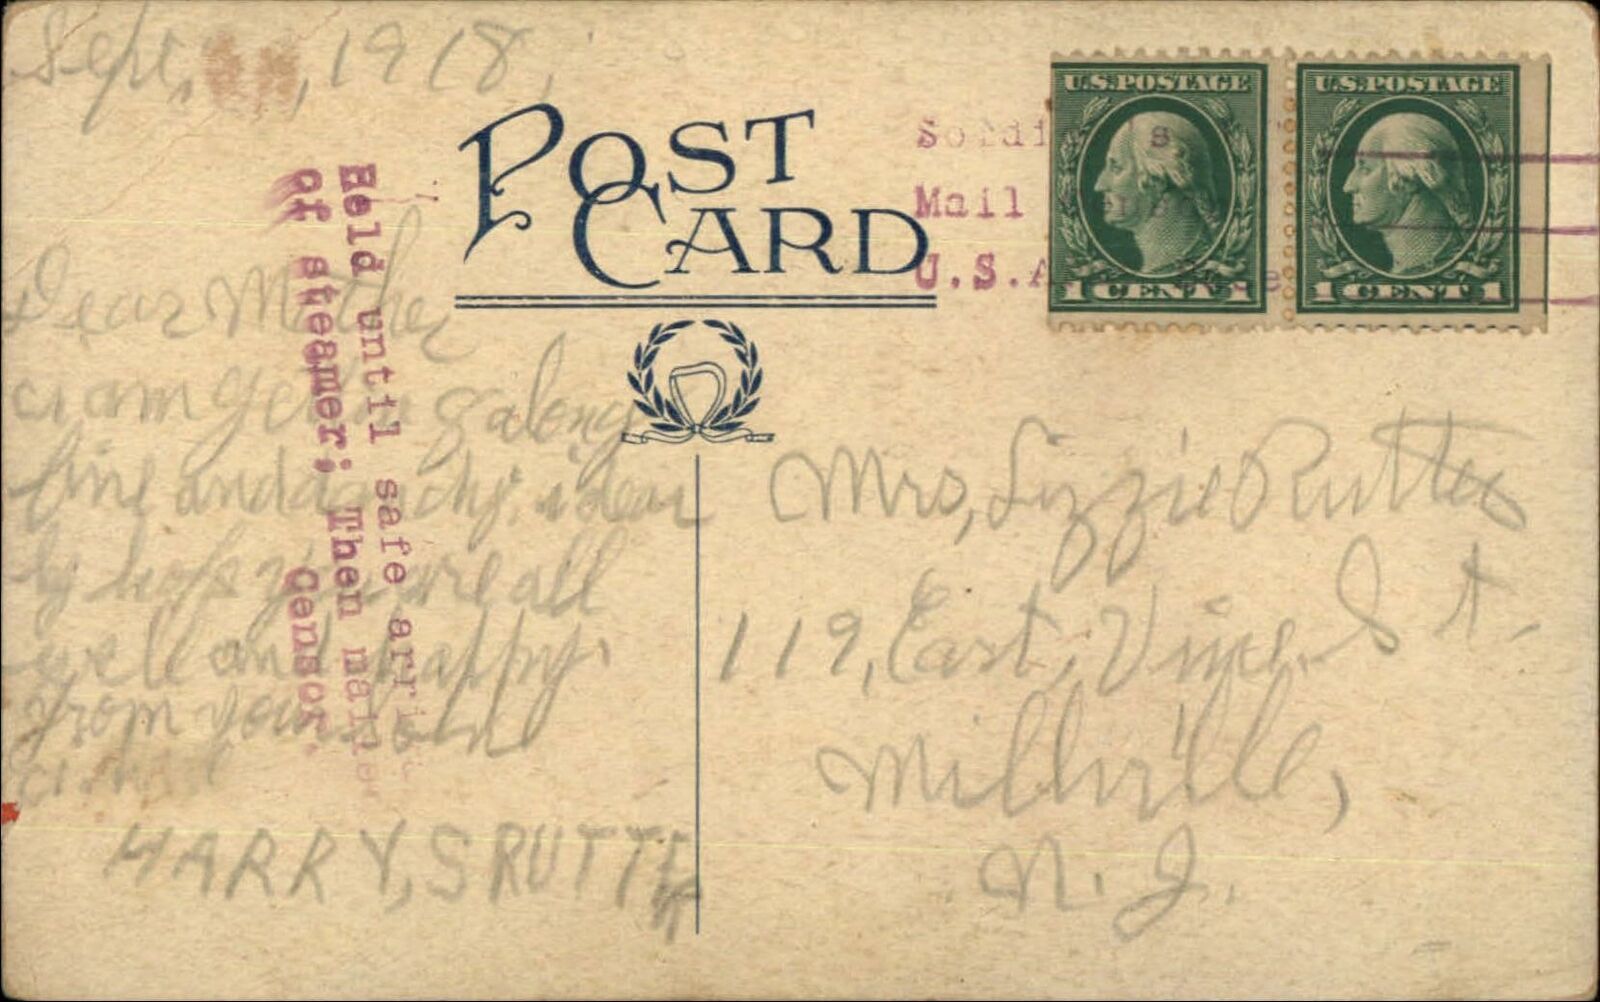 Sept, , 1918,
POST
CARD
Soldier's
Mail
U.S.A.
U.S.POSTAGE
1 CENT 1
U.S.POSTAGE
1 CENT 1
Held until safe arrival
of steamer. Then mailed
Censor.
Dear Mother
i am getting along
fine and dandy, i dear
ly hope you are all
well and happy,
from your
HARRY, S RUTTER
Mrs, Lizzie Rutter
119, East, Vine, St.
Millville,
N. J.